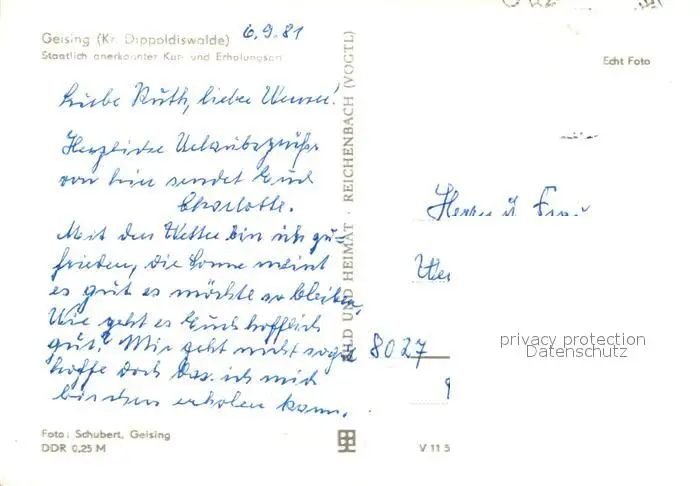 Geising (Kr. Dippoldiswalde)
Staatlich anerkannter Kur- und Erholungsort
6.9.81
Echt Foto
Liebe Ruth, lieber Werner!
Herzliche Urlaubsgrüße
von hier sendet Euch
Charlotte.
Mit den Wetter bin ich zu-
frieden, die Sonne meint
es gut es möchte so bleiben.
Wie geht es Euch hoffflich
gut? Mir geht nicht so gut
hoffe doch das ich mich
bischen erholen kann.
BILD UND HEIMAT · REICHENBACH (VOGTL)
Herrn u Frau
We
8027
privacy protection
Datenschutz
Foto: Schubert, Geising
DDR 0,25 M
V 11 5